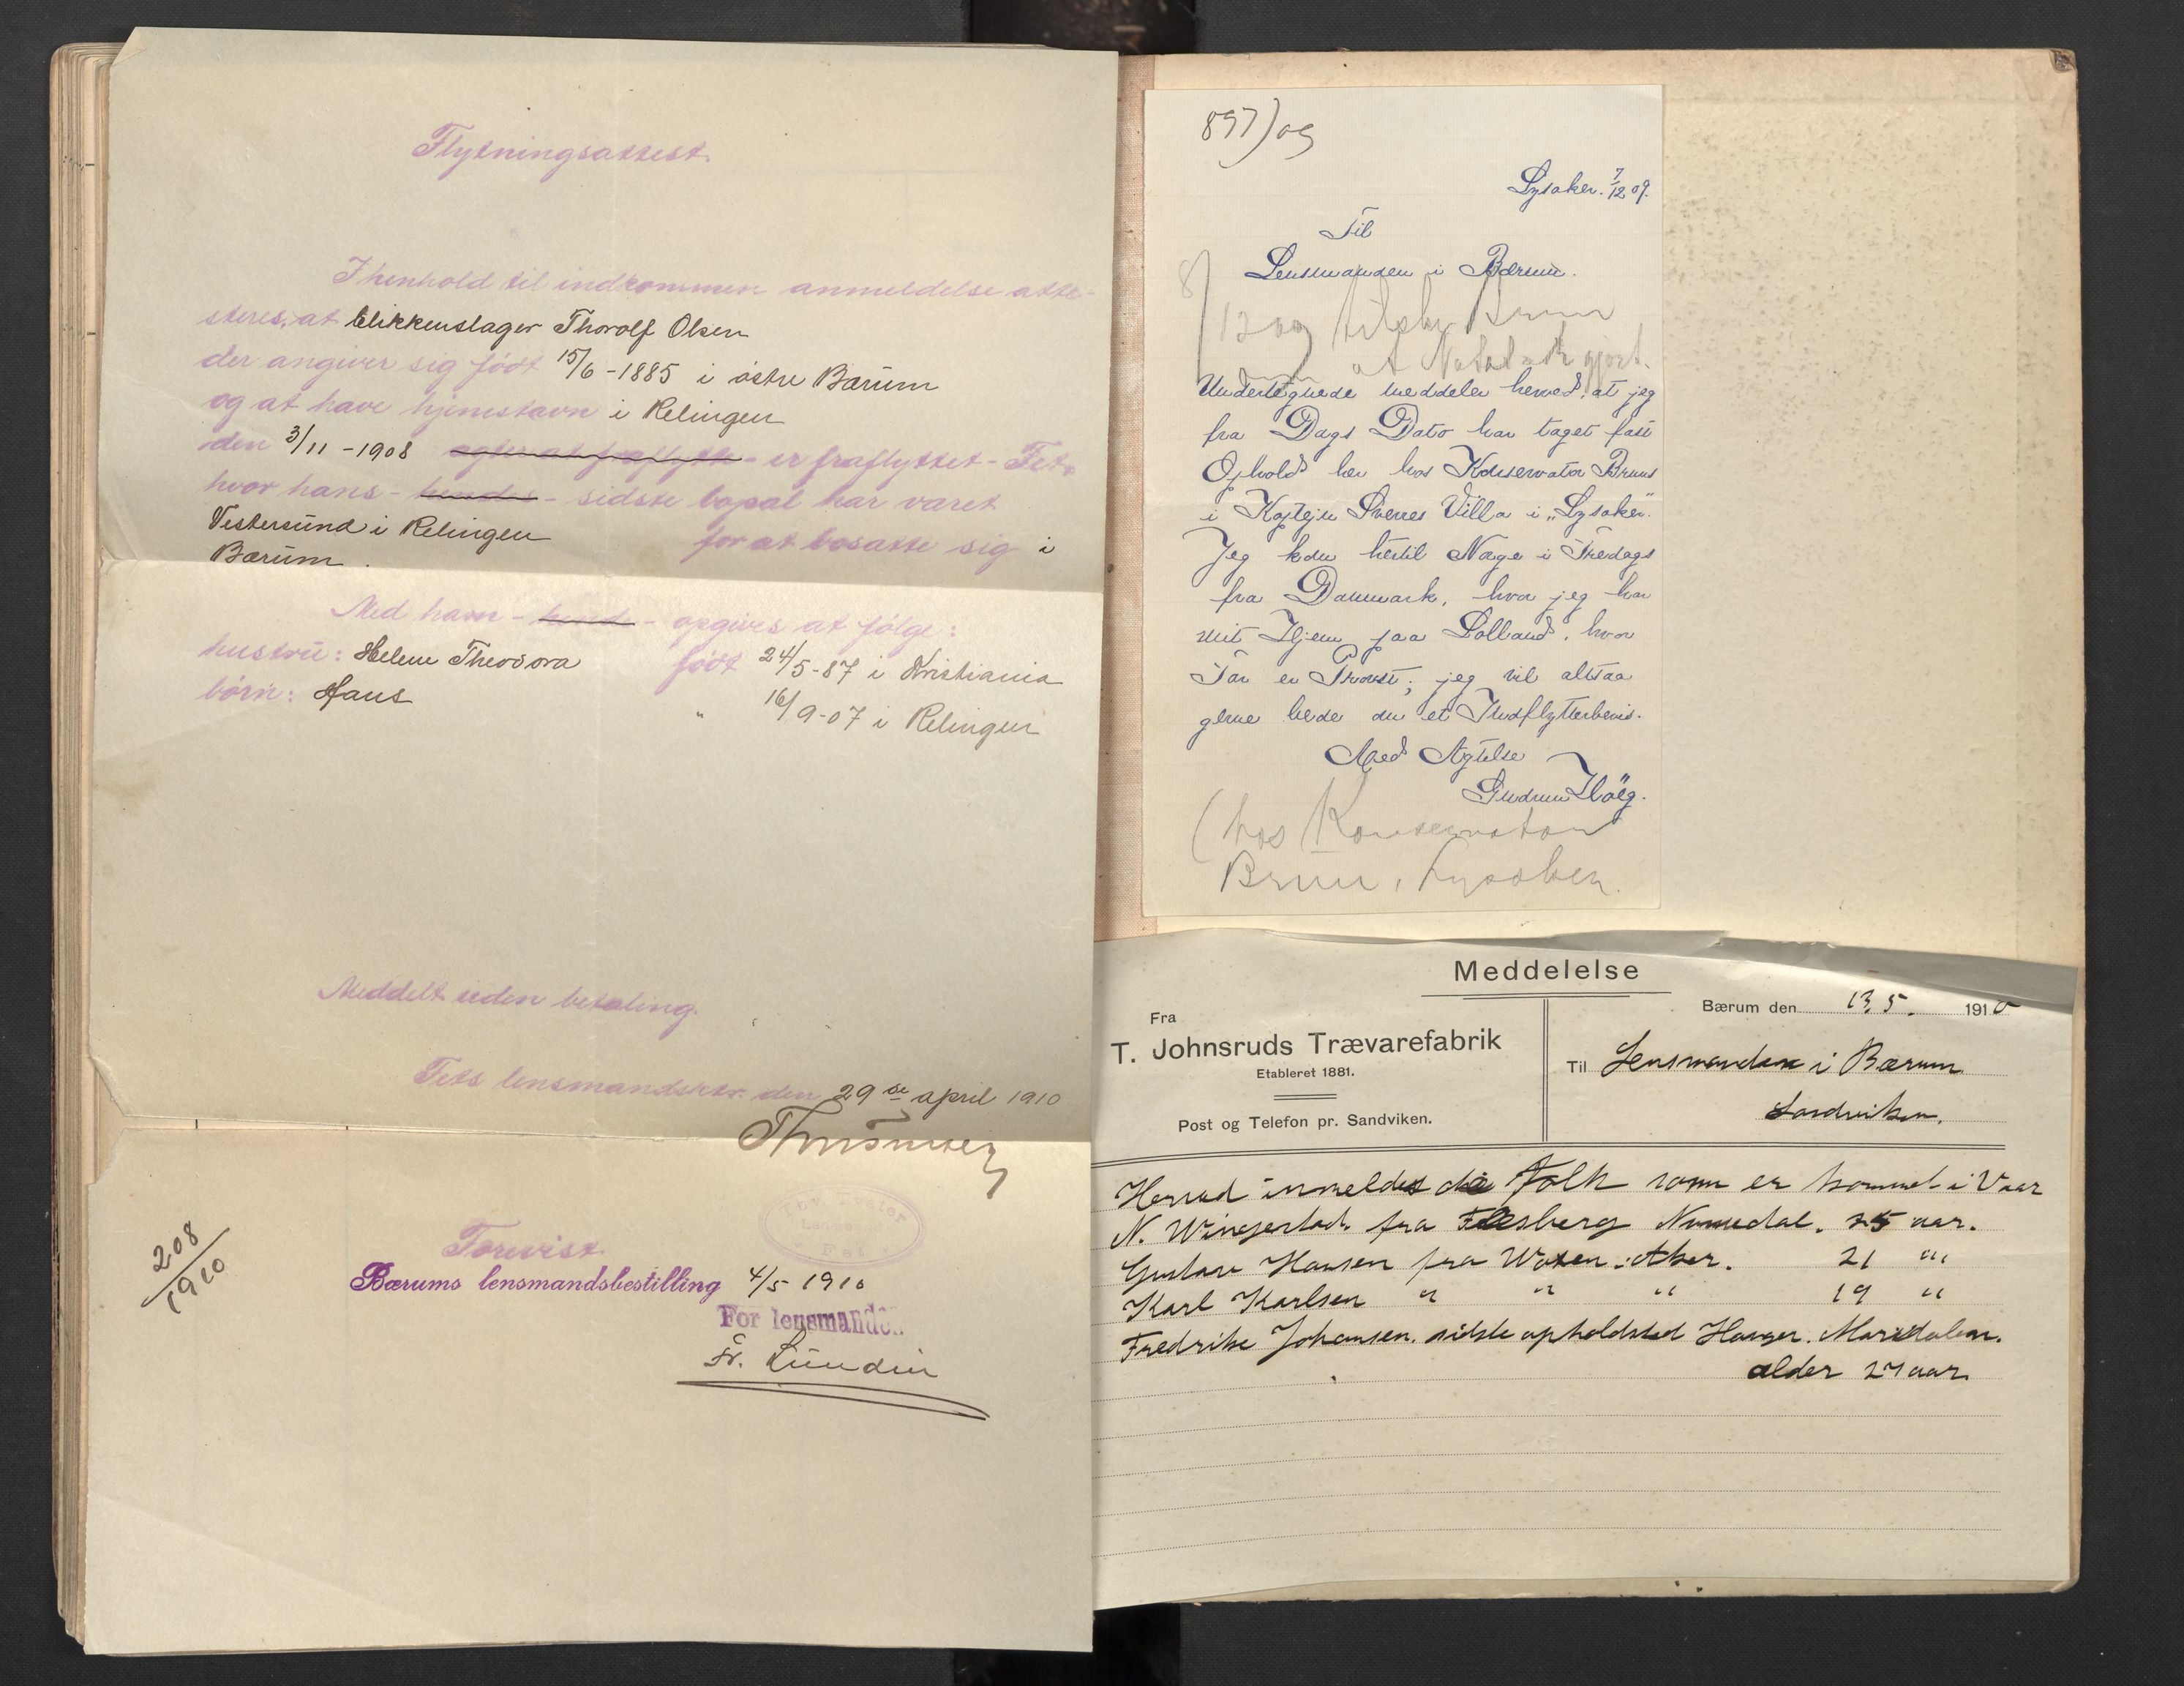 Flytningsattest.
I henhold til indkommen anmeldelse atte-
steres, at blikkenslager Thorolf Olsen
der angiver sig født 15/6-1885 i østre Bærum
og at have hjemstavn i Relingen
den 3/11-1908 er fraflyttet Fet,
hvor hans - hendes - sidste bopæl har været
Vestersund i Relingen for at bosætte sig i
Bærum.
Med ham - hende - opgives at følge:
hustru: Helene Theodora født 24/5-87 i Kristiania
børn: Hans " 16/9-07 i Relingen
Meddelt uden betaling.
Fets lensmandsktr. den 29de april 1910
Forevist
Bærums lensmandsbestilling 4/5 1910
For lensmanden
Fr. Lundin
208/1910
897) 09
Lysaker. 7/12 09.
Til
Lensmanden i Bærum.
Undertegnede meddeler herved, at jeg
fra Dags Dato har taget fast
Ophold her hos Konservator Bruns
i Kaptejn Svenes Villa i „Lysaker".
Jeg kom hertil Norge i Fredags
fra Danmark, hvor jeg har
mit Hjem paa Lolland, hvor
Far er Provst; jeg vil altsaa
gerne bede om et Indflytterbevis.
Med Agtelse
Gudrun Høeg.
(hos Konservator
Brun, Lysaker.
Meddelelse
Fra
T. Johnsruds Trævarefabrik
Etableret 1881.
Post og Telefon pr. Sandviken.
Bærum den 13.5. 1910
Til Lensmanden i Bærum
Sandviken.
Herved inmeldes de folk som er kommet i Vaar
N. Wingerstad fra Flesberg Numedal. 25 aar.
Gustav Hansen fra Woxen. Aker. 21 "
Karl Karlsen " " " 19 "
Fredrike Johansen. sidste opholdsted Hauger. Maridalen.
alder 27 aar.